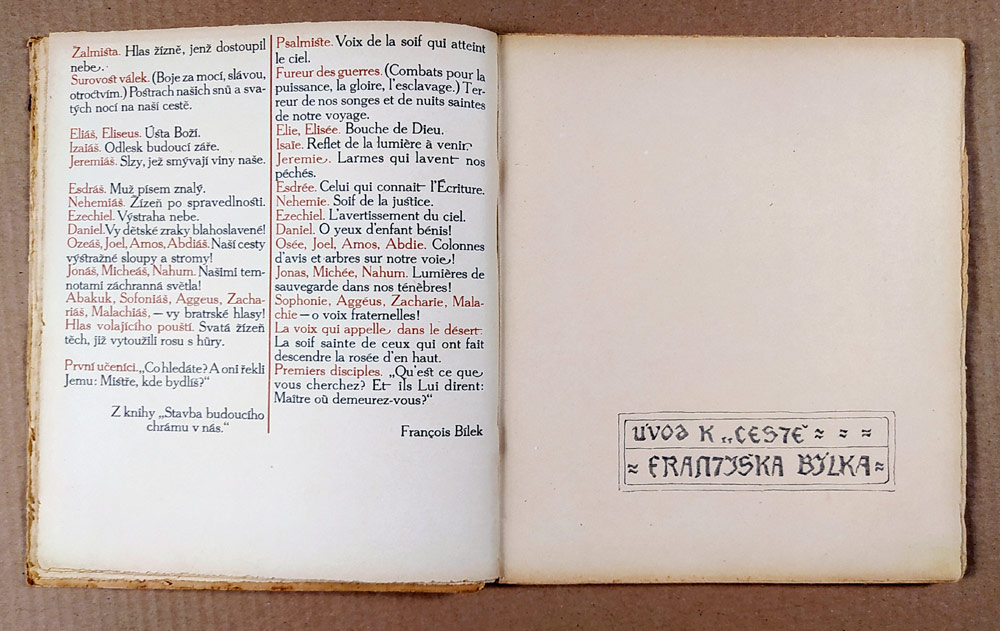 Žalmista. Hlas žízně, jenž dostoupil
nebe.
Surovost válek. (Boje za mocí, slávou,
otroctvím.) Postrach našich snů a sva-
tých nocí na naší cestě.
Eliáš, Eliseus. Ústa Boží.
Izaiáš. Odlesk budoucí záře.
Jeremiáš. Slzy, jež smývají viny naše.
Esdráš. Muž písem znalý.
Nehemiáš. Žízeň po spravedlnosti.
Ezechiel. Výstraha nebe.
Daniel. Vy dětské zraky blahoslavené!
Ozeáš, Joel, Amos, Abdiáš. Naší cesty
výstražné sloupy a stromy!
Jonáš, Micheáš, Nahum. Našimi tem-
notami záchranná světla!
Abakuk, Sofoniáš, Aggeus, Zacha-
riáš, Malachiáš, — vy bratrské hlasy!
Hlas volajícího pouští. Svatá žízeň
těch, již vytoužili rosu s hůry.
První učeníci. „Co hledáte? A oni řekli
Jemu: Mistře, kde bydlíš?“
Z knihy „Stavba budoucího
chrámu v nás.“
Psalmiste. Voix de la soif qui atteint
le ciel.
Fureur des guerres. (Combats pour la
puissance, la gloire, l'esclavage.) Ter-
reur de nos songes et de nuits saintes
de notre voyage.
Elie, Elisée. Bouche de Dieu.
Isaïe. Reflet de la lumière à venir.
Jeremie. Larmes qui lavent nos
péchés.
Esdrée. Celui qui connait l'Écriture.
Nehemie. Soif de la justice.
Ezechiel. L'avertissement du ciel.
Daniel. O yeux d'enfant bénis!
Osée, Joel, Amos, Abdie. Colonnes
d'avis et arbres sur notre voie!
Jonas, Michée, Nahum. Lumières de
sauvegarde dans nos ténèbres!
Sophonie, Aggéus, Zacharie, Mala-
chie — o voix fraternelles!
La voix qui appelle dans le désert.
La soif sainte de ceux qui ont fait
descendre la rosée d'en haut.
Premiers disciples. „Qu'est ce que
vous cherchez? Et ils Lui dirent:
Maître où demeurez-vous?“
François Bílek
ÚVOD K „CESTĚ“
FRANTIŠKA BÍLKA